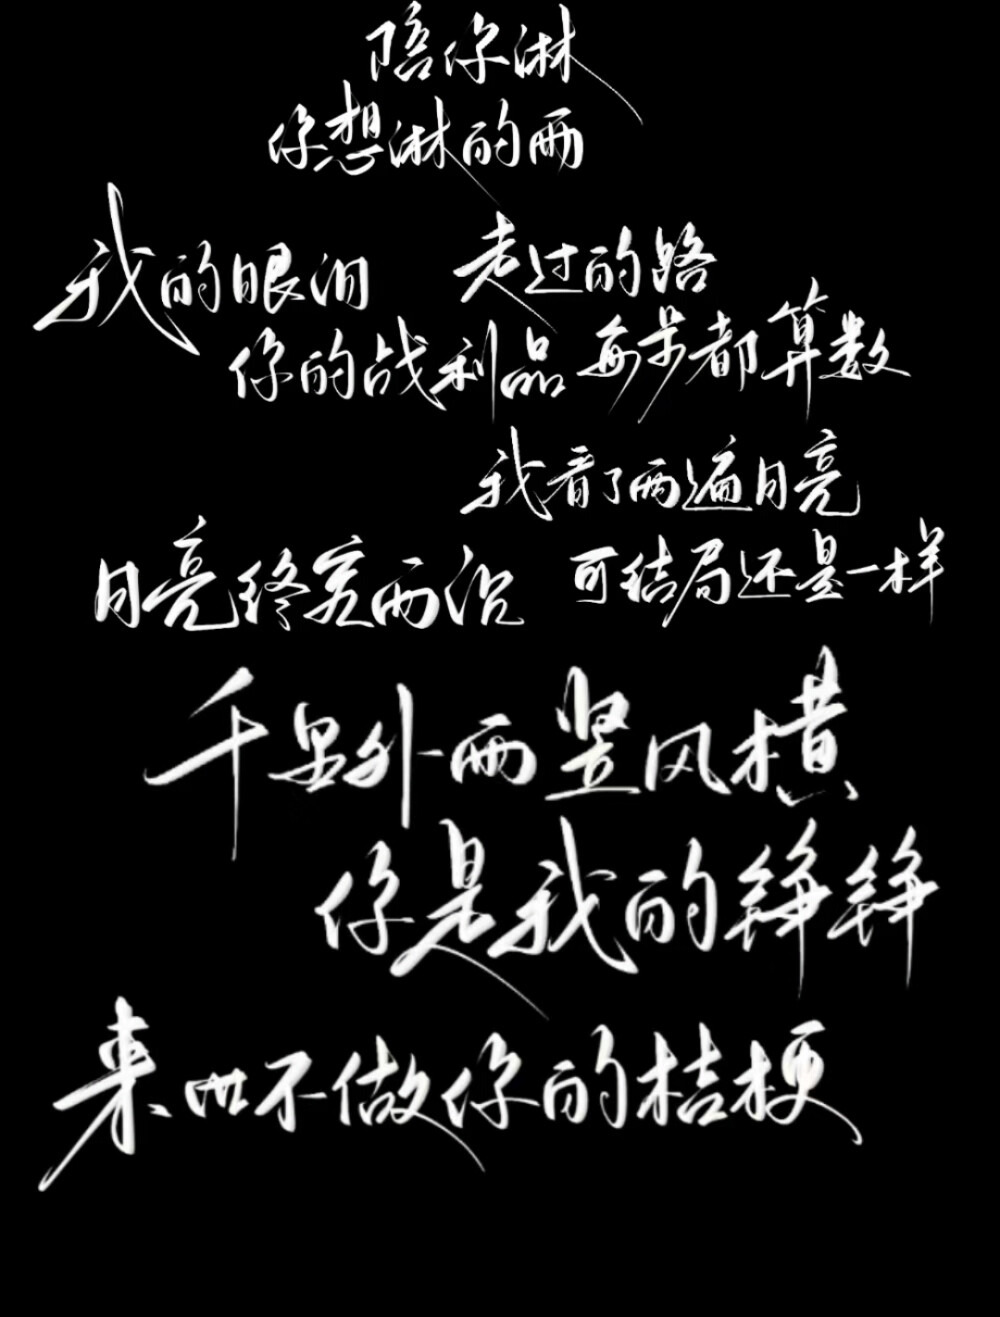 陪你淋
你想淋的雨
我的眼泪
你的战利品
走过的路
每步都算数
我看了两遍月亮
可结局还是一样
月亮终究两沉
千里外雨竖风横
你是我的铮铮
来世不做你的桔梗